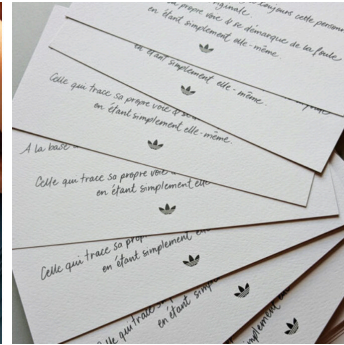 toujours cette personne
originale
sa propre voie & se démarque de la foule
en étant simplement elle-même.
en étant simplement elle-même.
Celle qui trace sa propre voie &
en étant simplement elle-même.
A la base
Celle qui trace sa propre voie
en étant simplement elle
Celle qui trace sa prop
en étant simplement
Celle qui trace sa
en étant simp
simplement